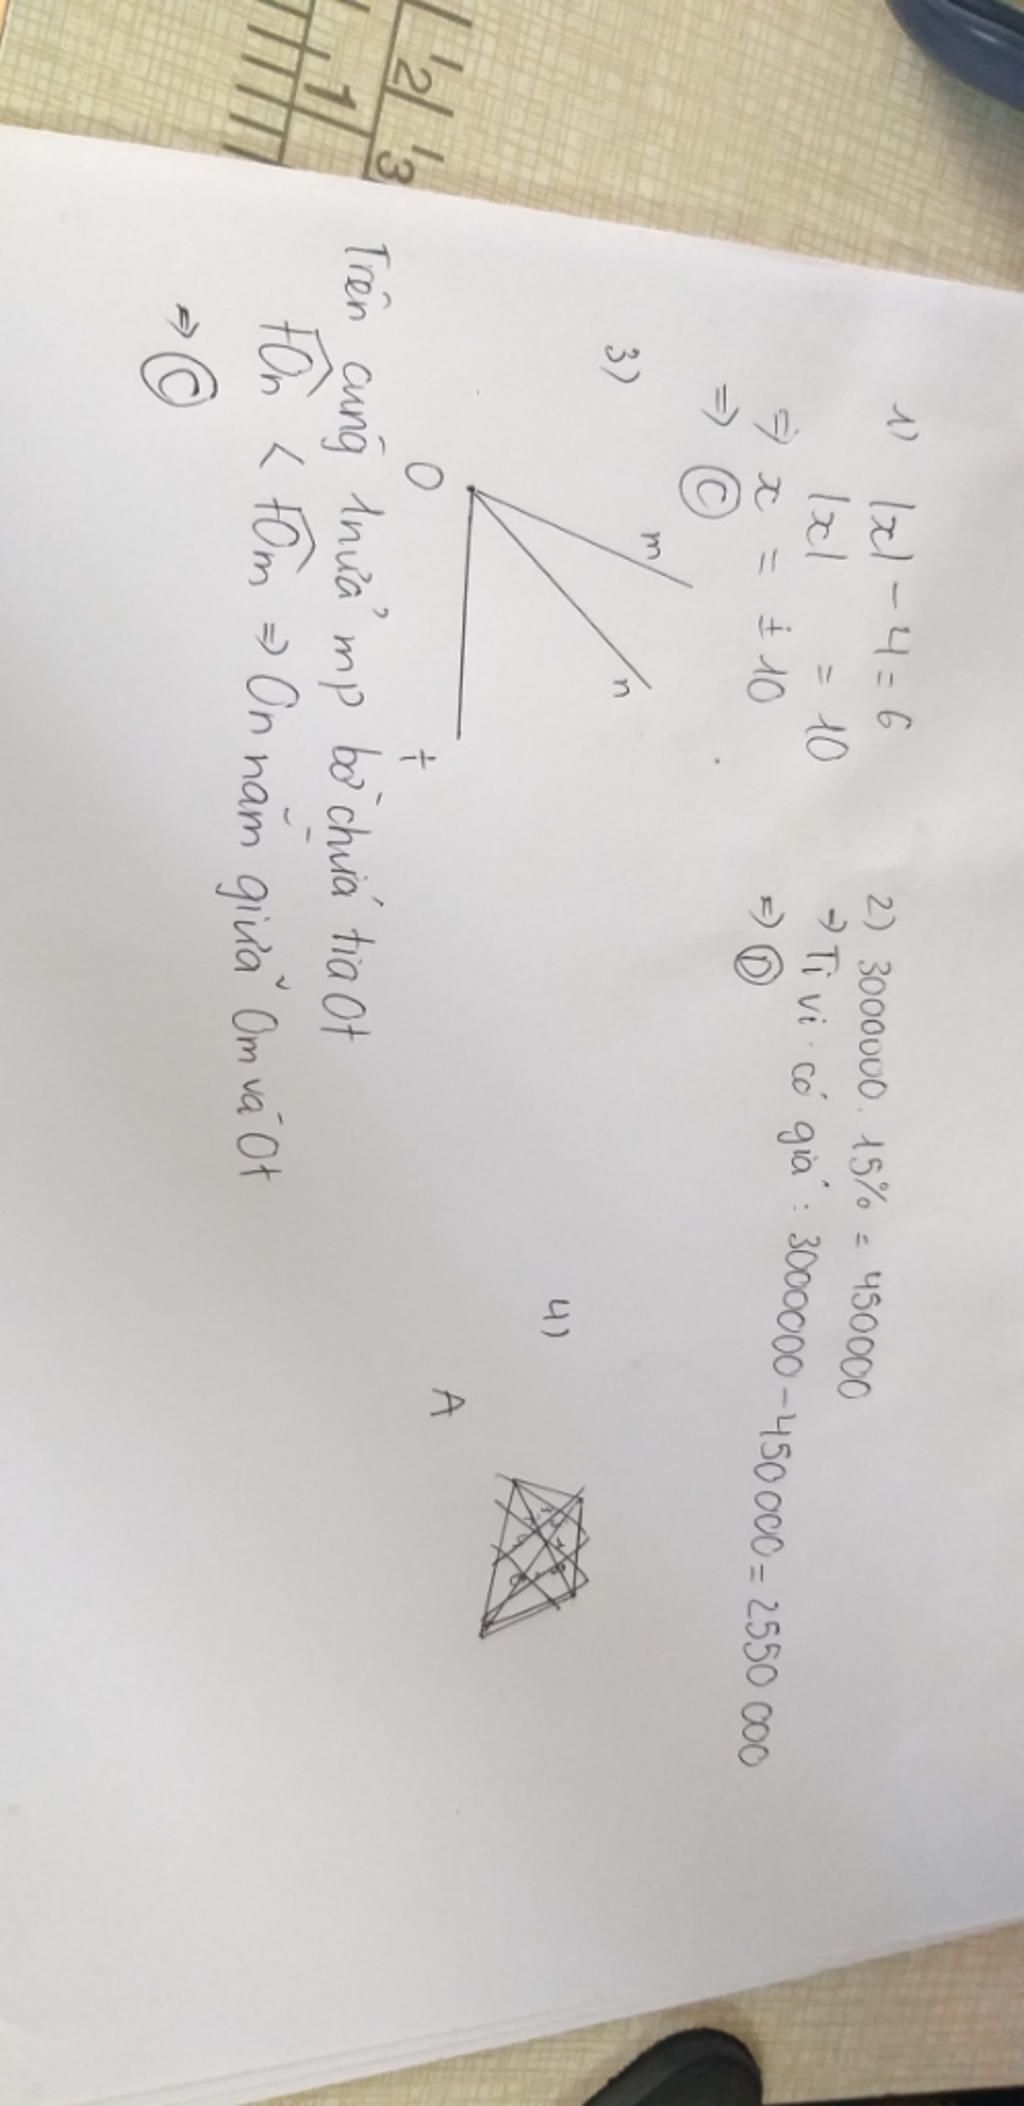 1) |x| - 4 = 6
|x| = 10
⇒ x = ± 10
⇒ C
2) 3000000. 15% = 450000
→ Ti vi có giá : 3000000 - 450000 = 2550 000
⇒ D
3)
m
n
O
t
Trên cùng 1 nửa mp bờ chứa tia Ot
tOn < tOm ⇒ On nằm giữa Om và Ot
⇒ C
4)
A
1 2 3
1